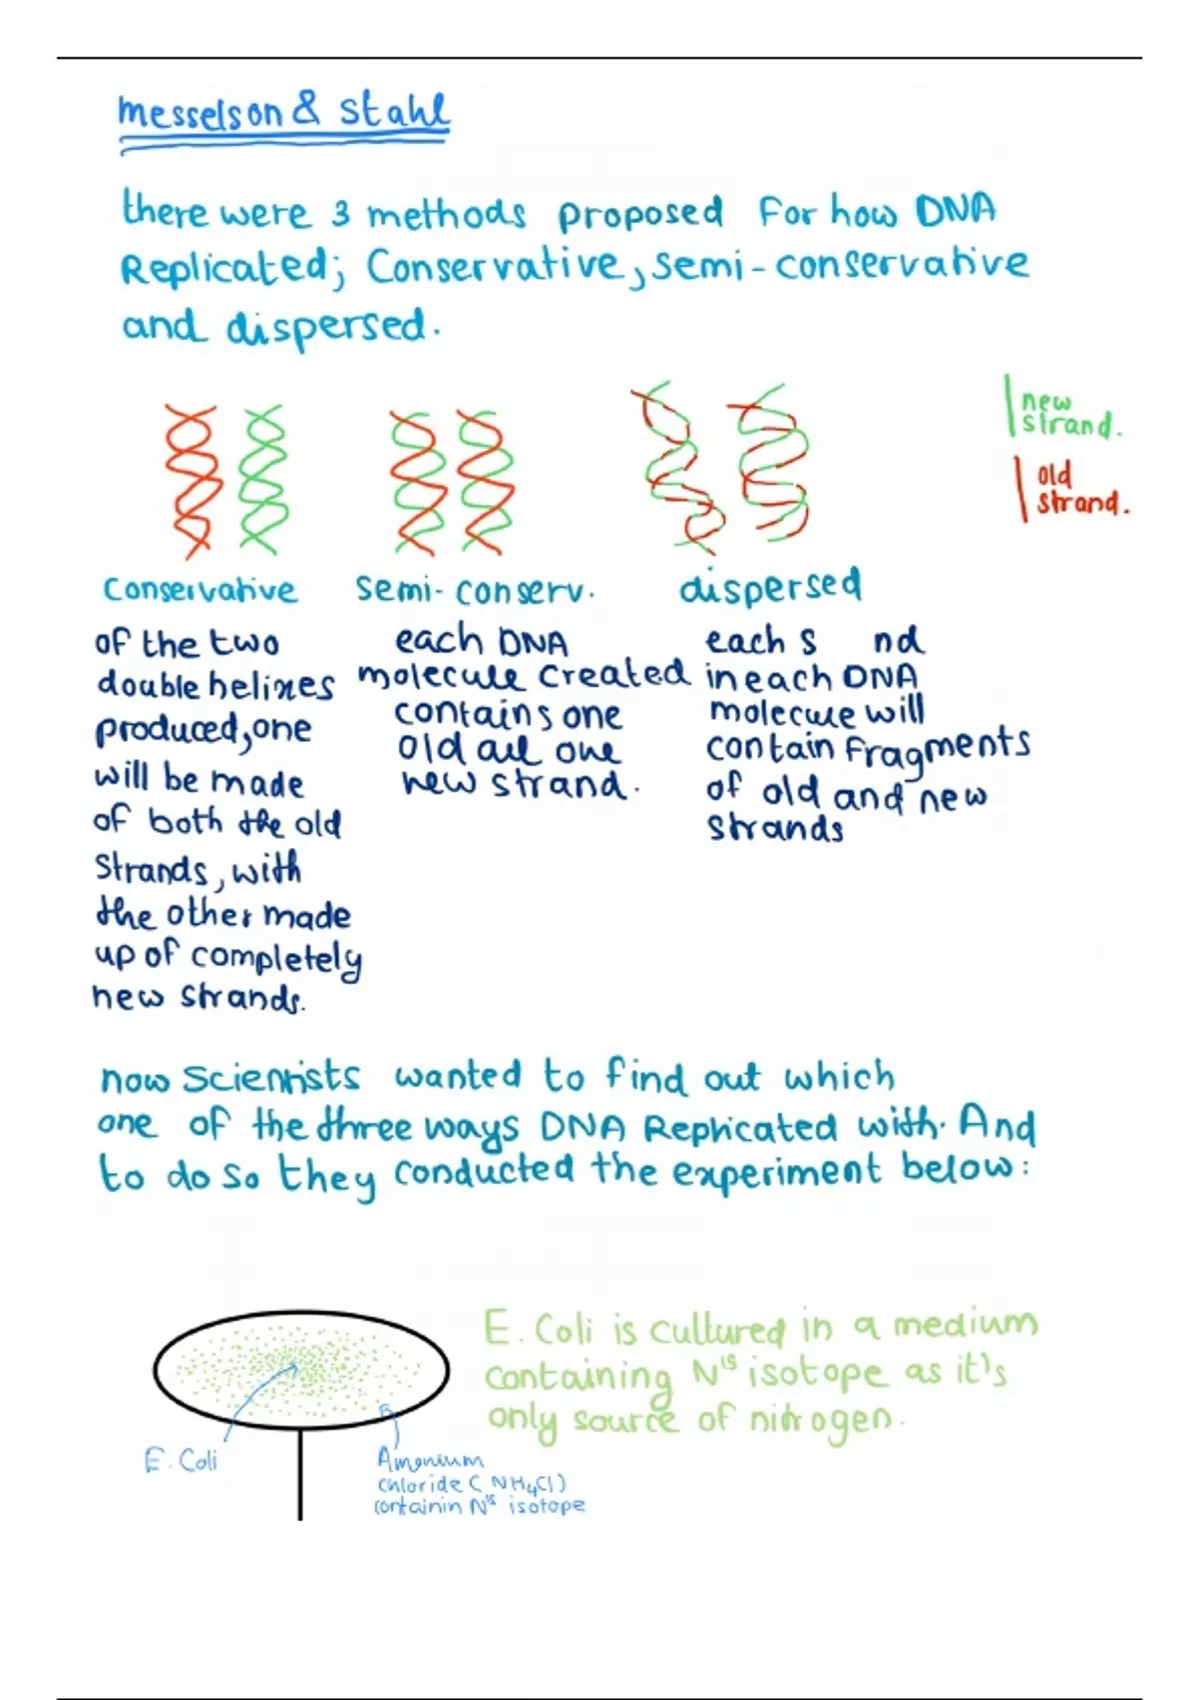 Messelson & Stahl
there were 3 methods proposed for how DNA
Replicated; Conservative, semi-conservative
and dispersed.
new
strand.
old
strand.
Conservative
of the two
double helixes
produced, one
will be made
of both the old
strands, with
the other made
up of completely
new strands.
semi-conserv.
each DNA
molecule created
contains one
old and one
new strand.
dispersed
each s nd
in each DNA
molecule will
contain fragments
of old and new
strands
now scientists wanted to find out which
one of the three ways DNA Replicated with. And
to do so they conducted the experiment below:
E. Coli is cultured in a medium
containing N¹⁵ isotope as it's
only source of nitrogen.
E. Coli
Amonium
chloride (NH₄Cl)
containin N¹⁵ isotope